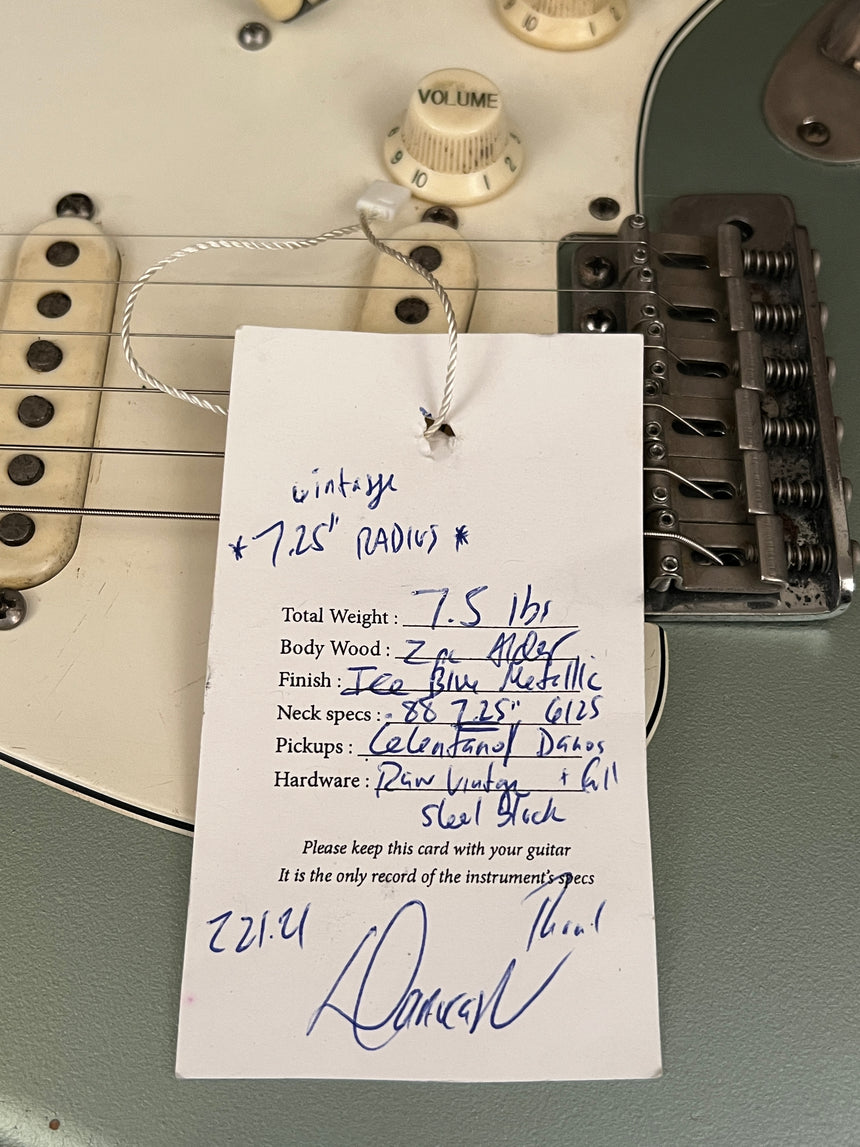 VOLUME
9 10 1 2
10
vintage
* 7.25" RADIUS *
Total Weight : 7.5 lbs
Body Wood : 2pc Alder
Finish : Ice Blue Metallic
Neck specs : .88 7.25" 6125
Pickups :
Hardware : Raw Vintage + full
steel block
Please keep this card with your guitar
It is the only record of the instrument's specs